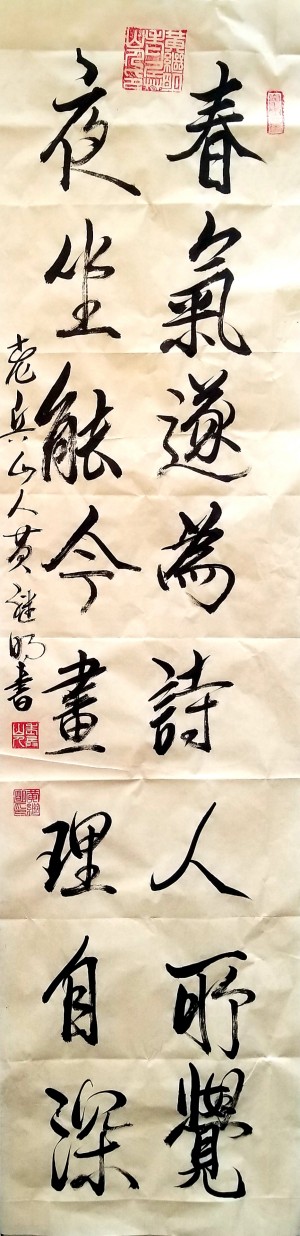 春氣遂為詩人所覺
夜坐能令畫理自深
老兵山人黄继明書